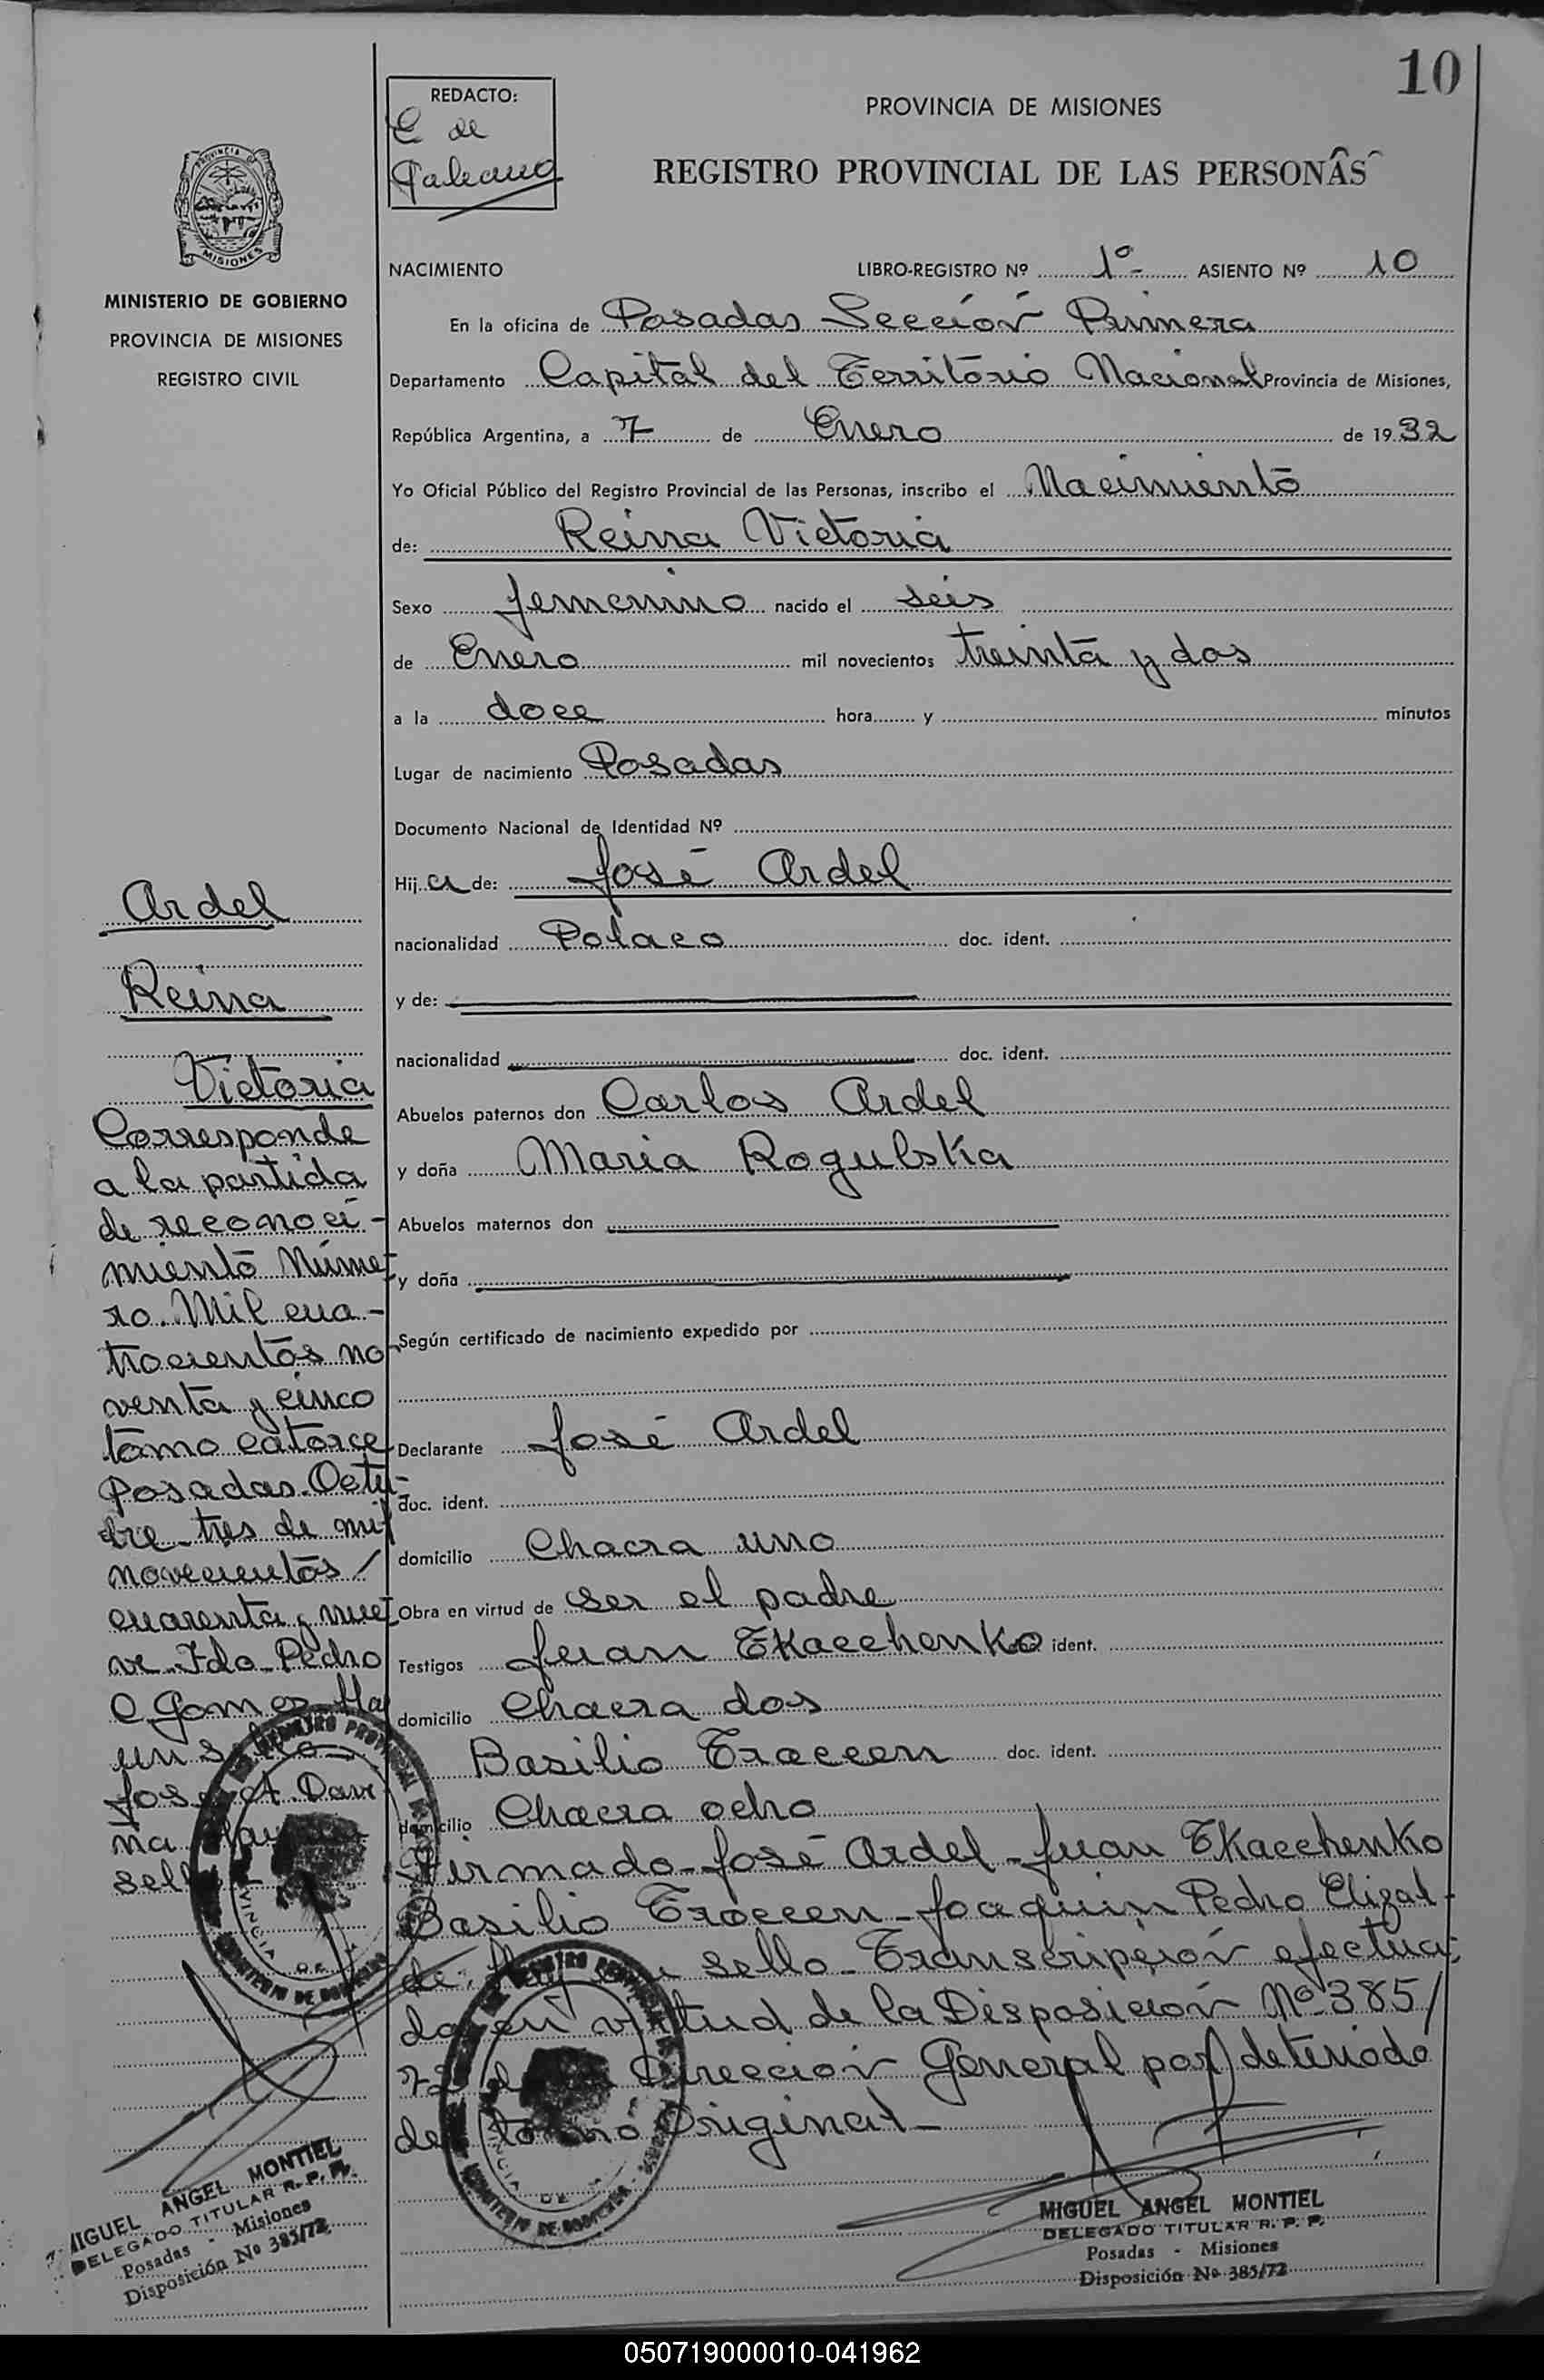 10
REDACTO:
E de
Galeano
PROVINCIA DE MISIONES
REGISTRO PROVINCIAL DE LAS PERSONAS
PROVINCIA DE
MISIONES
MINISTERIO DE GOBIERNO
PROVINCIA DE MISIONES
REGISTRO CIVIL
NACIMIENTO LIBRO-REGISTRO Nº 1º- ASIENTO Nº 10
En la oficina de Posadas Sección Primera
Departamento Capital del Território Nacional Provincia de Misiones,
República Argentina, a 7 de Enero de 1932
Yo Oficial Público del Registro Provincial de las Personas, inscribo el Nacimiento
de: Reina Victoria
Sexo femenino nacido el seis
de Enero mil novecientos treinta y dos
a la doce hora y minutos
Lugar de nacimiento Posadas
Documento Nacional de Identidad Nº
Hija de: José Ardel
nacionalidad Polaco doc. ident.
y de:
nacionalidad doc. ident.
Abuelos paternos don Carlos Ardel
y doña Maria Rogulska
Abuelos maternos don
y doña
Según certificado de nacimiento expedido por
Declarante José Ardel
doc. ident.
domicilio Chacra uno
Obra en virtud de ser el padre
Testigos Juan Tkacchenko ident.
domicilio Chacra dos
Basilio Traccen doc. ident.
domicilio Chacra ocho
Firmado-José Ardel-Juan Tkacchenko
Basilio Traccen-Joaquin Pedro Elizal-
de. Hay un sello-Transcripción efectua-
da en virtud de la Disposición Nº 385/
72 de la Dirección General por deteriodo
del tomo Original-
Ardel
Reina
Victoria
Corresponde
a la partida
de reconoci-
miento Núme-
ro. Mil cua-
trocientos no-
venta y cinco
tomo catorce
Posadas. Octu-
bre-tres de mil
novecientos/
cuarenta y nue-
ve-Fdo-Pedro
C Gomez-Hay
un sello
José A. Davi
ña. Hay
sello
MIGUEL ANGEL MONTIEL
DELEGADO TITULAR R. P. P.
Posadas - Misiones
Disposición Nº 385/72
MIGUEL ANGEL MONTIEL
DELEGADO TITULAR R. P. P.
Posadas - Misiones
Disposición Nº 385/72
050719000010-041962